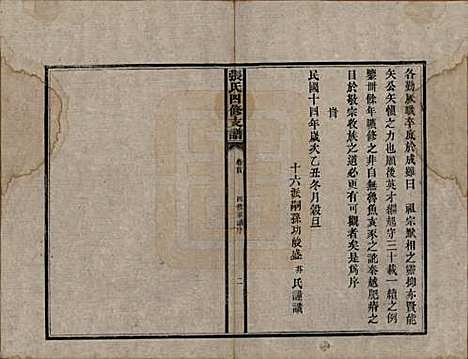 各勤厥職卒底於成雖曰 祖宗默相之靈抑亦賢能
矢公矢慎之力也願後英才繼起守三十載一續之例
鑒卅餘年曠修之非自無魯魚亥豕之訛秦越肥瘠之
目於敬宗收族之道必更有可觀者矣是為序
旹
民國十四年歲次乙丑冬月穀旦
十六派嗣孫功般盛 氏謹識
張氏四修支譜
卷首
四修序
二